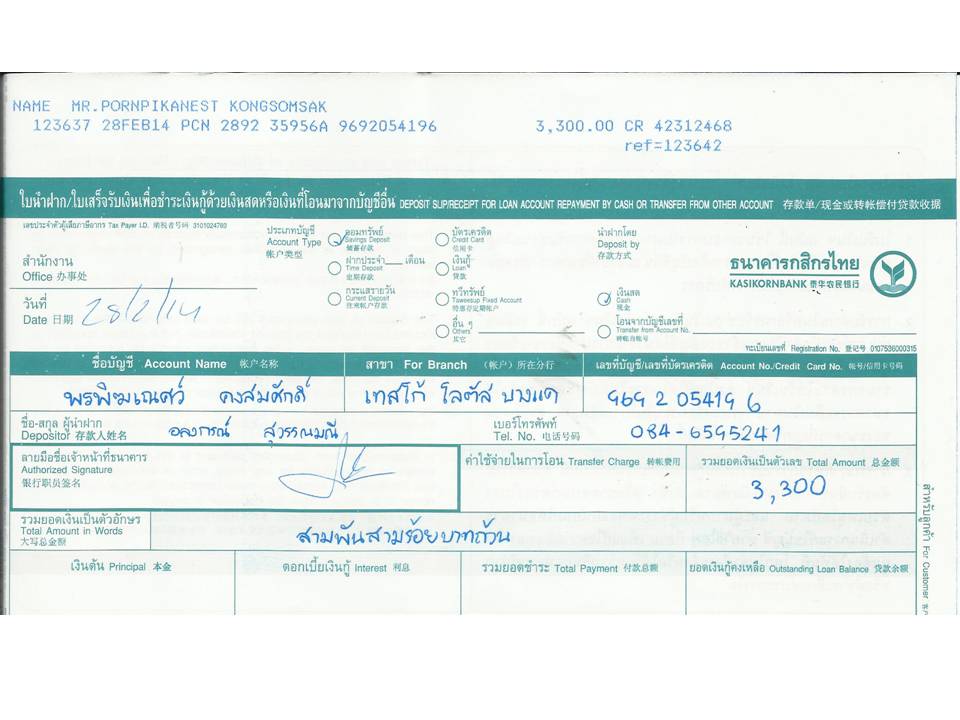 NAME MR.PORNPIKANEST KONGSOMSAK
123637 28FEB14 PCN 2892 35956A 9692054196 3,300.00 CR 42312468
ref=123642
ใบนำฝาก/ใบเสร็จรับเงินเพื่อชำระเงินกู้ด้วยเงินสดหรือเงินที่โอนมาจากบัญชีอื่น DEPOSIT SLIP/RECEIPT FOR LOAN ACCOUNT REPAYMENT BY CASH OR TRANSFER FROM OTHER ACCOUNT 存款单/现金或转帐偿付贷款收据
เลขประจำตัวผู้เสียภาษีอากร Tax Payer I.D. 纳税者号码 3101024763
สำนักงาน
Office 办事处
วันที่
Date 日期 28/2/14
ประเภทบัญชี
Account Type
帐户类型
ออมทรัพย์
Savings Deposit
储蓄存款
ฝากประจำ___เดือน
Time Deposit
定期存款
กระแสรายวัน
Current Deposit
往来帐户存款
บัตรเครดิต
Credit Card
信用卡
เงินกู้
Loan
贷款
ทวีทรัพย์
Taweesup Fixed Account
特惠存定期帐户
อื่น ๆ
Others
其它
นำฝากโดย
Deposit by
存款方式
เงินสด
Cash
现金
โอนจากบัญชีเลขที่
Transfer from Account No.
转帐自帐号
ธนาคารกสิกรไทย
KASIKORNBANK 泰华农民银行
ทะเบียนเลขที่ Registration No. 登记号 0107536000315
ชื่อบัญชี Account Name 帐户名称 สาขา For Branch (帐户)所在分行 เลขที่บัญชี/เลขที่บัตรเครดิต Account No./Credit Card No. 帐号/信用卡号码
พรพิฆเณศว์ คงสมศักดิ์ เทสโก้ โลตัส บางแค 969 2 05419 6
ชื่อ-สกุล ผู้นำฝาก
Depositor 存款人姓名 อลงกรณ์ สุวรรณมณี
เบอร์โทรศัพท์
Tel. No. 电话号码 084-6595241
ลายมือชื่อเจ้าหน้าที่ธนาคาร
Authorized Signature
银行职员签名
ค่าใช้จ่ายในการโอน Transfer Charge 转帐费用
รวมยอดเงินเป็นตัวเลข Total Amount 总金额
3,300
รวมยอดเงินเป็นตัวอักษร
Total Amount in Words
大写总金额
สามพันสามร้อยบาทถ้วน
เงินต้น Principal 本金 ดอกเบี้ยเงินกู้ Interest 利息 รวมยอดชำระ Total Payment 付款总额 ยอดเงินกู้คงเหลือ Outstanding Loan Balance 贷款余额
สำหรับลูกค้า For Customer